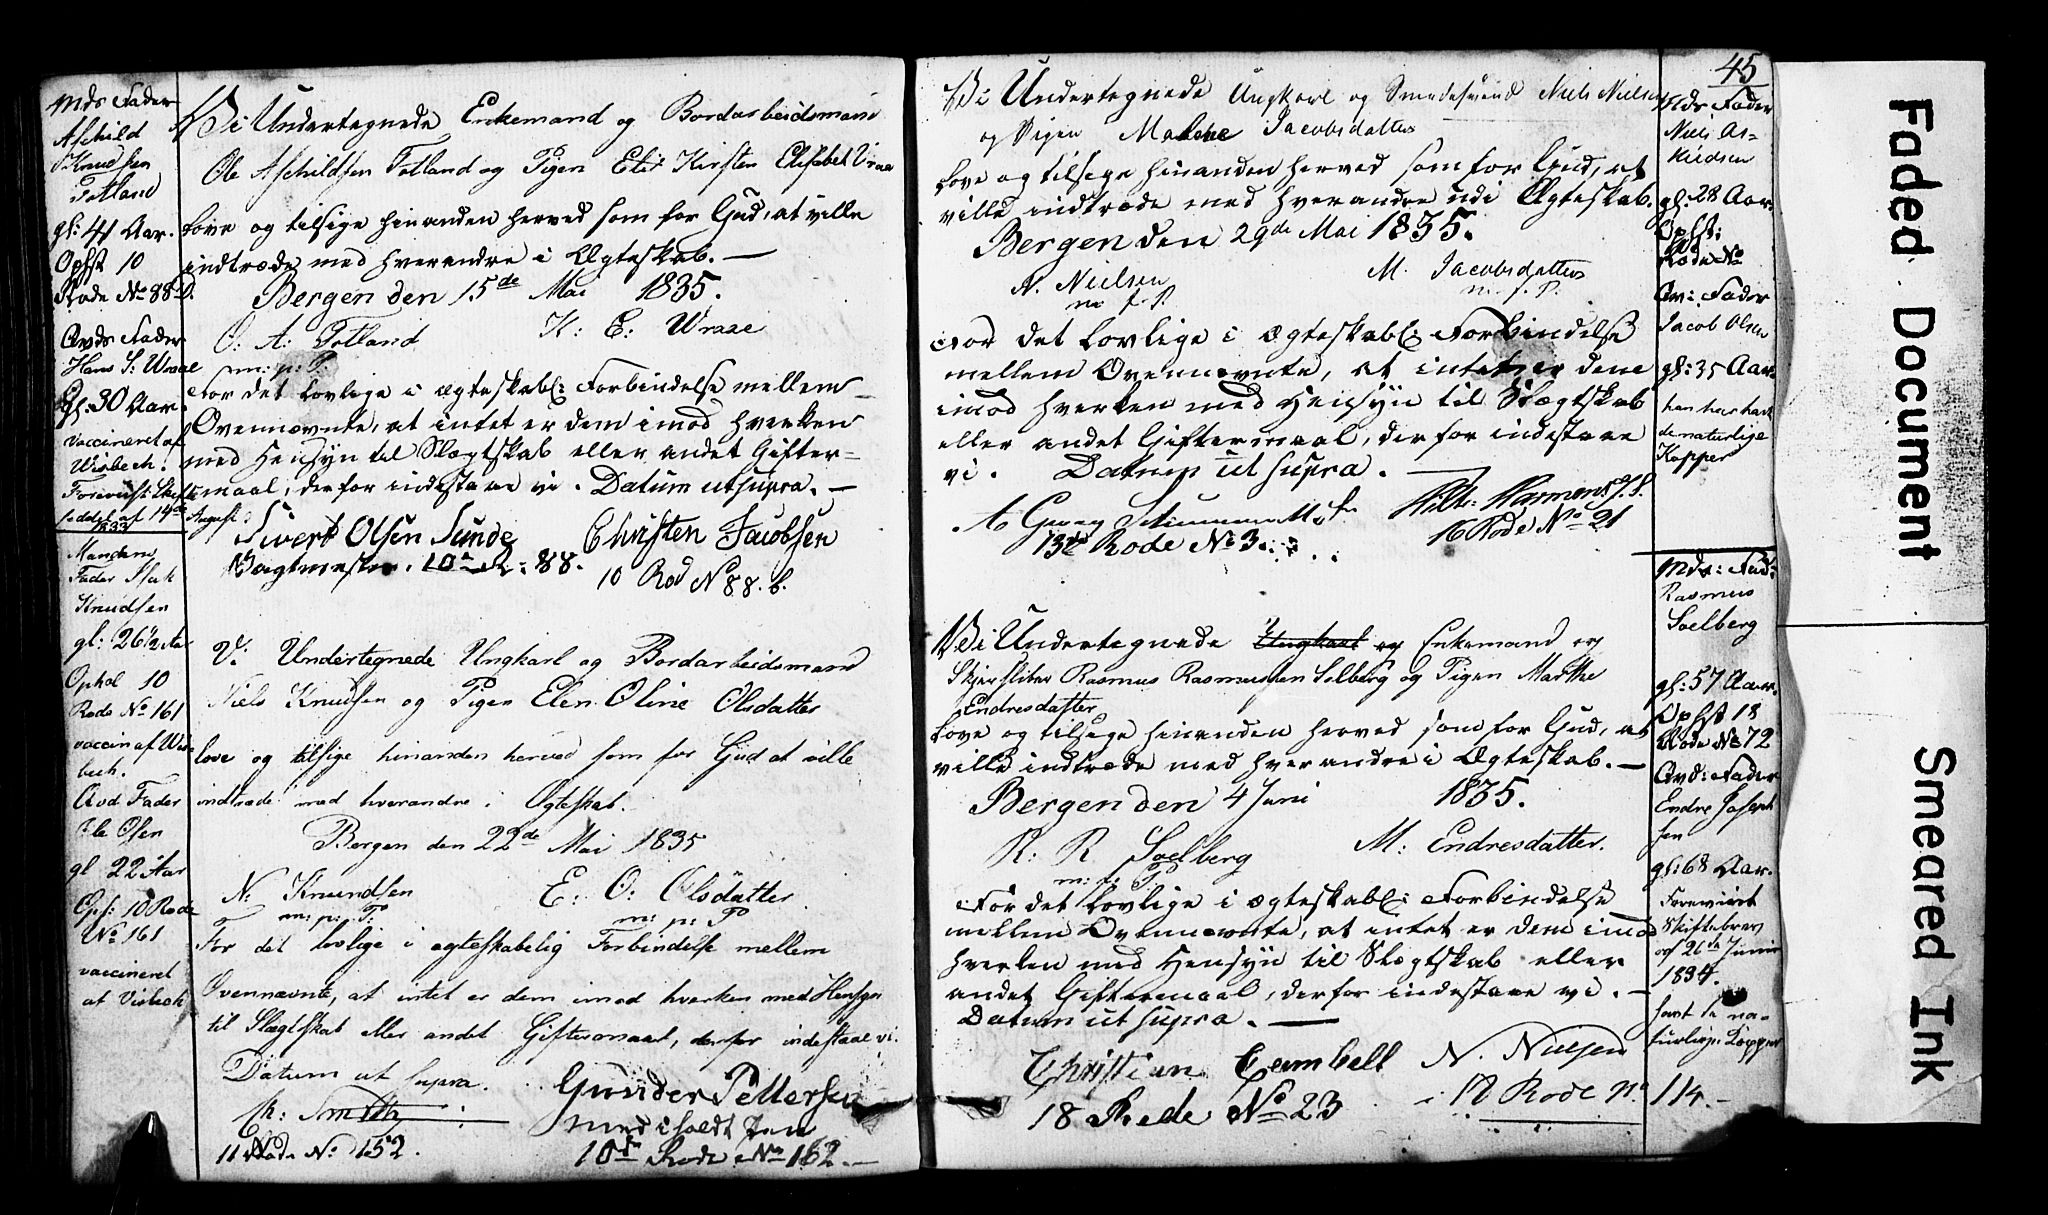 Mds Fader
Aschild
Knudsen
Totland
gl: 41 Aar.
Ophst 10
Rode No 88 b.
Qvds Fader
Hans S: Wraae
gl: 30 Aar.
vaccineret af
Wisbech.
Foreviist Skifte
seddel af 14de August
1833
Vi Undertegnede Enkemand og Bordarbeidsmand
Ole Aschildsen Totland og Pigen Elis Kirsten Elisabet Wraae
love og tilsige hinanden herved som for Gud, at ville
indtræde med hverandre i Ægteskab. —
Bergen den 15de Mai 1835.
O: A: Totland K: E: Wraae
m: p: P:
For det lovlige i ægteskabl: Forbindelse mellem
Ovennævnte, at intet er dem imod hverken
med Hensyn til Slægtskab eller andet Gifter-
maal, derfor indestaae vi. Datum ut supra. —
Sivert Olsen Sunde Christen Jacobsen
Vagtmester. 10de R: 88. 10 Rod No 88. b.
Mandens
Fader Isak
Knudsen
gl: 26 1/2 Aar
Ophol 10
Rode No 161
vaccin af Wis-
bech.
Qvd Fader
Ole Olsen
gl 22 Aar
Ops: 10 Rode
No 161
vaccineret
af Visbech
Vi Undertegnede Ungkarl og Bordarbeidsmand
Niels Knudsen og Pigen Elen Oline Olsdatter
love og tilsige hinanden herved som for Gud at ville
indtræde med hverandre i Ægteskab.
Bergen den 22de Mai 1835
N: Knundsen E: O: Olsdatter
m: p: P: m: p: P
For det lovlige i ægteskabelig Forbindelse mellem
Ovennævnte, at intet er dem imod hverken med Hensyn
til Slægtskab eller andet Giftermaal, derfor indestaae vi.
Datum ut supra.
Ch: Smith Gunder Pettersen
11 Rode No 152. 10de Rode No 162. —
45
Vi Undertegnede Ungkarl og Smedesvend Niels Nielsen
og Pigen Malene Jacobsdatter
love og tilsige hinanden herved som for Gud, at
ville indtræde med hverandre udi Ægteskab.
Bergen den 29de Mai 1835.
N. Nielsen M. Jacobsdatter
m f. P. m. f. P.
For det lovlige i ægteskabl: Forbindelse
mellem Ovennævnte, at intet er dem
imod hverken med Hensyn til Slægtskab
eller andet Giftermaal, derfor indestaae
vi. Datum ut supra. —
13de Rode No 3. 16 Rode No 21
Mds Fader
Niels As-
kieldsen
gl: 28 Aar.
Ophst:
Rode No
Qv: Fader
Jacob Olsen
gl: 35 Aar.
han har havt
de naturlige
Kopper
Vi Undertegnede Ungkarl og Enkemand og
Skjærsliber Rasmus Rasmussen Solberg og Pigen Marthe
Endresdatter
love og tilsige hinanden herved som for Gud, at
ville indtræde med hverandre i Ægteskab. —
Bergen den 4 Juni 1835.
R: R Soelberg M: Endresdatter.
m: p: P.
For det lovlige i ægteskabl: Forbindelse
mellem Ovennævnte, at intet er dem imod
hverken med Hensyn til Slægtskab eller
andet Giftermaal, derfor indestaae vi. —
Datum ut supra. —
Christian Cambell N. Nielsen
18 Rode No 23 i 17 Rode No 114. —
Mds: Fad:
Rasmus
Soelberg
gl: 57 Aar.
Ophst 18
Rode No 72
Qvd: Fader
Endre Joseph
sen
gl: 68 Aar.
Foreviist
Skiftebrev
af 26de Junii
1834.
havt de na-
turlige Kopper
Faded Document
Smeared Ink